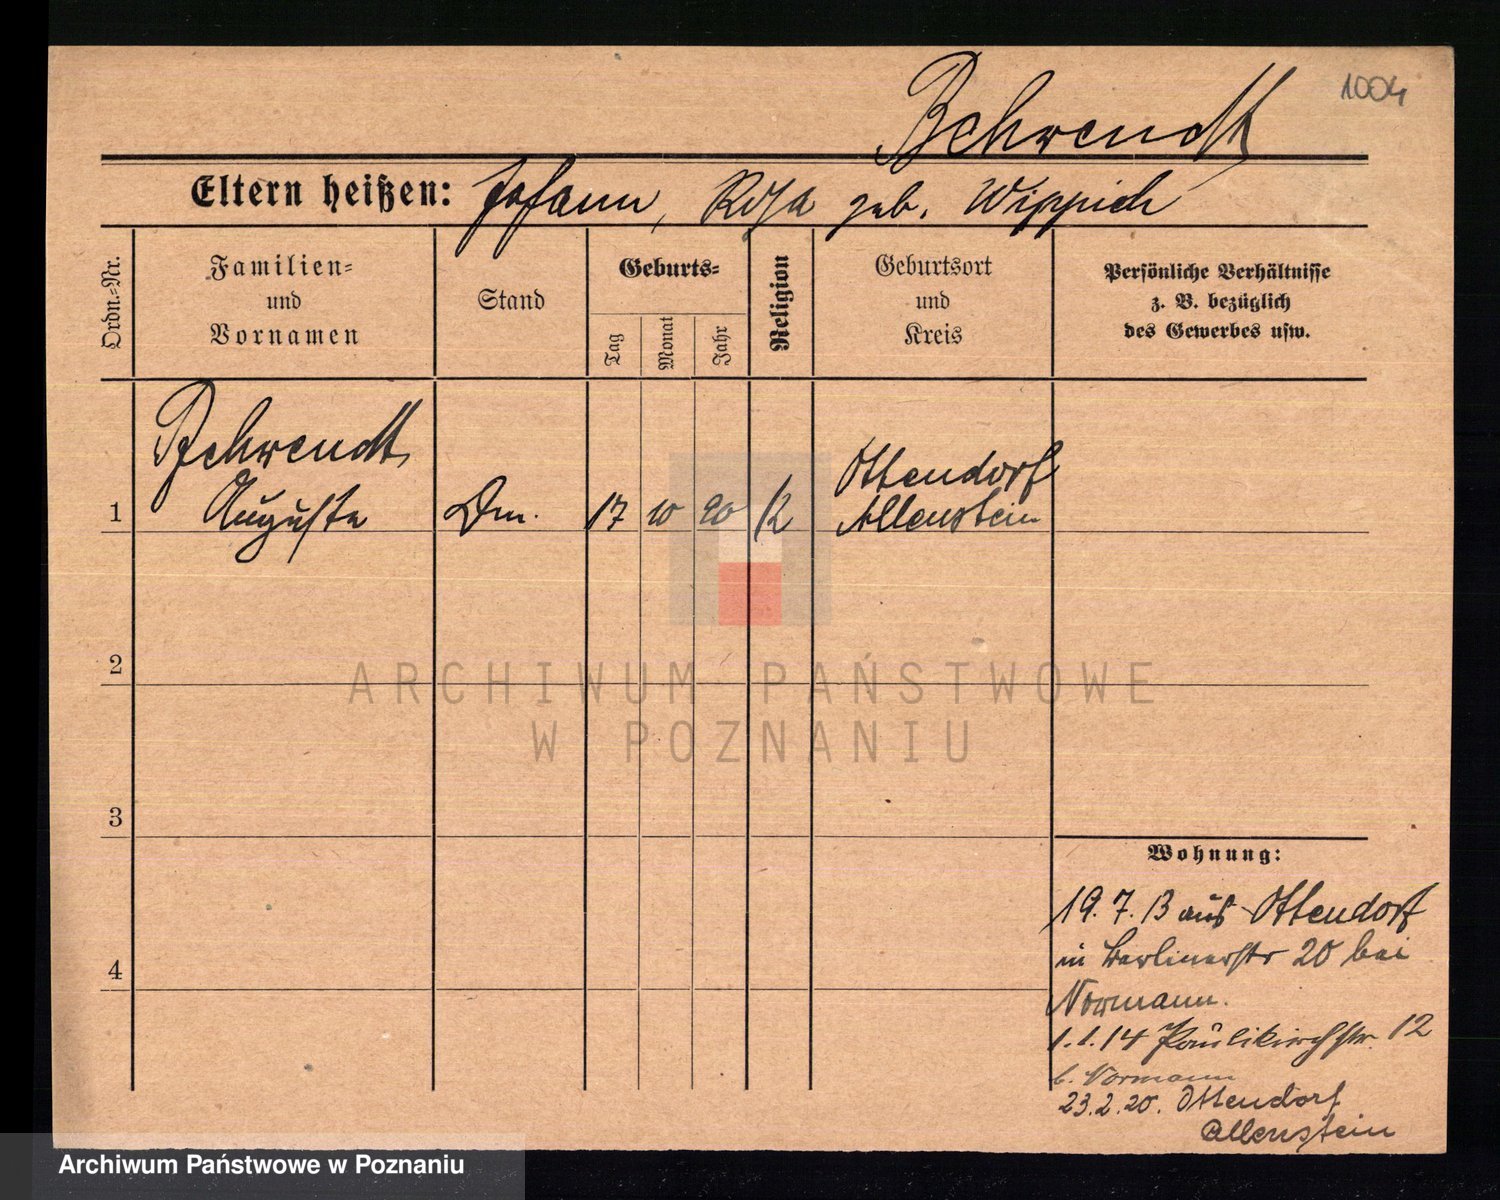 1004
Behrendt
Eltern heißen: Johann, Rosa geb. Wippich
Ordn.=Nr.
Familien=
und
Vornamen
Stand
Geburts=
Tag
Monat
Jahr
Religion
Geburtsort
und
Kreis
Persönliche Verhältnisse
z. B. bezüglich
des Gewerbes usw.
Behrendt
Auguste
1
17 10 90 k
Ottendorf
Allenstein
2
3
4
ARCHIWUM PAŃSTWOWE
W POZNANIU
Wohnung:
19. 7. 13 aus Ottendorf
in Berlinerstr 20 bei
Normann.
1. 1. 14 Paulikirchstr. 12
b. Normann
23.2.20. Ottendorf
Allenstein
Archiwum Państwowe w Poznaniu